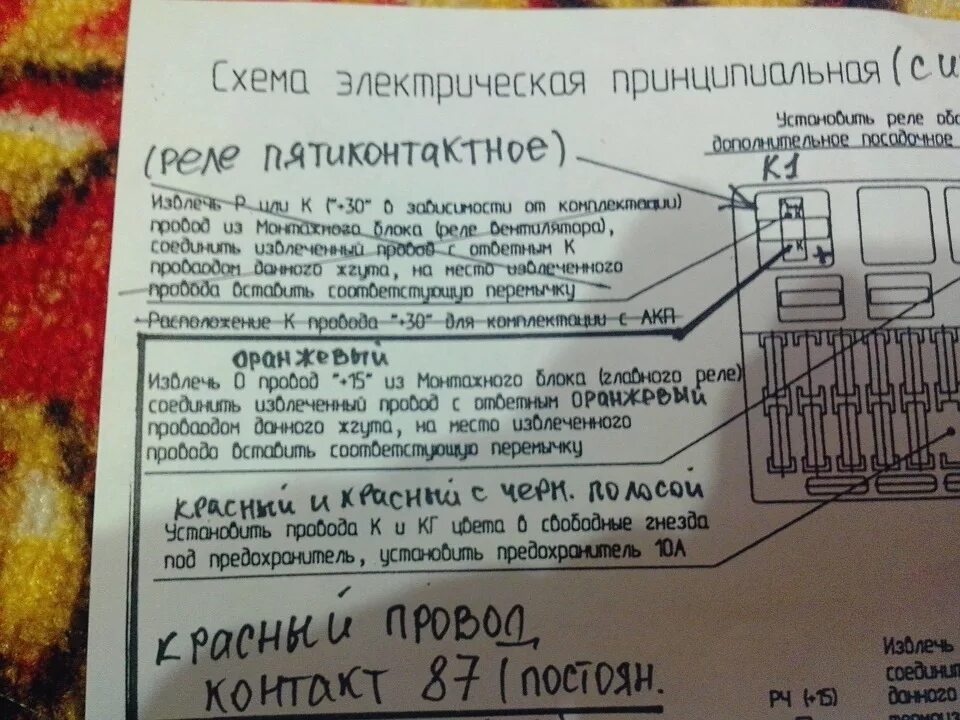 Схема электрическая принципиальная (си
Установить реле обо
дополнительное посадочное
(реле пятиконтактное)
К1
Извлечь Р или К ("+30" в зависимости от комплектации)
провод из Монтажного блока (реле вентилятора),
соединить извлеченный провод с ответным К
проваодом данного жгута, на место извлеченного
провода вставить соответстующую перемычку
К
+
Расположение К провода "+30" для комплектации с АКП
оранжевый
Извлечь О провод "+15" из Монтажного блока (главного реле)
соединить извлеченный провод с ответным оранжевый
проваодом данного жгута, на место извлеченного
провода вставить соответстующую перемычку
красный и красный с черн. полосой
Установить провода К и КГ цвета в свободные гнезда
под предохранитель, установить предохранитель 10А
красный провод
контакт 87 (постоян.
Извлечь
соедини
данного
РЧ (+15)